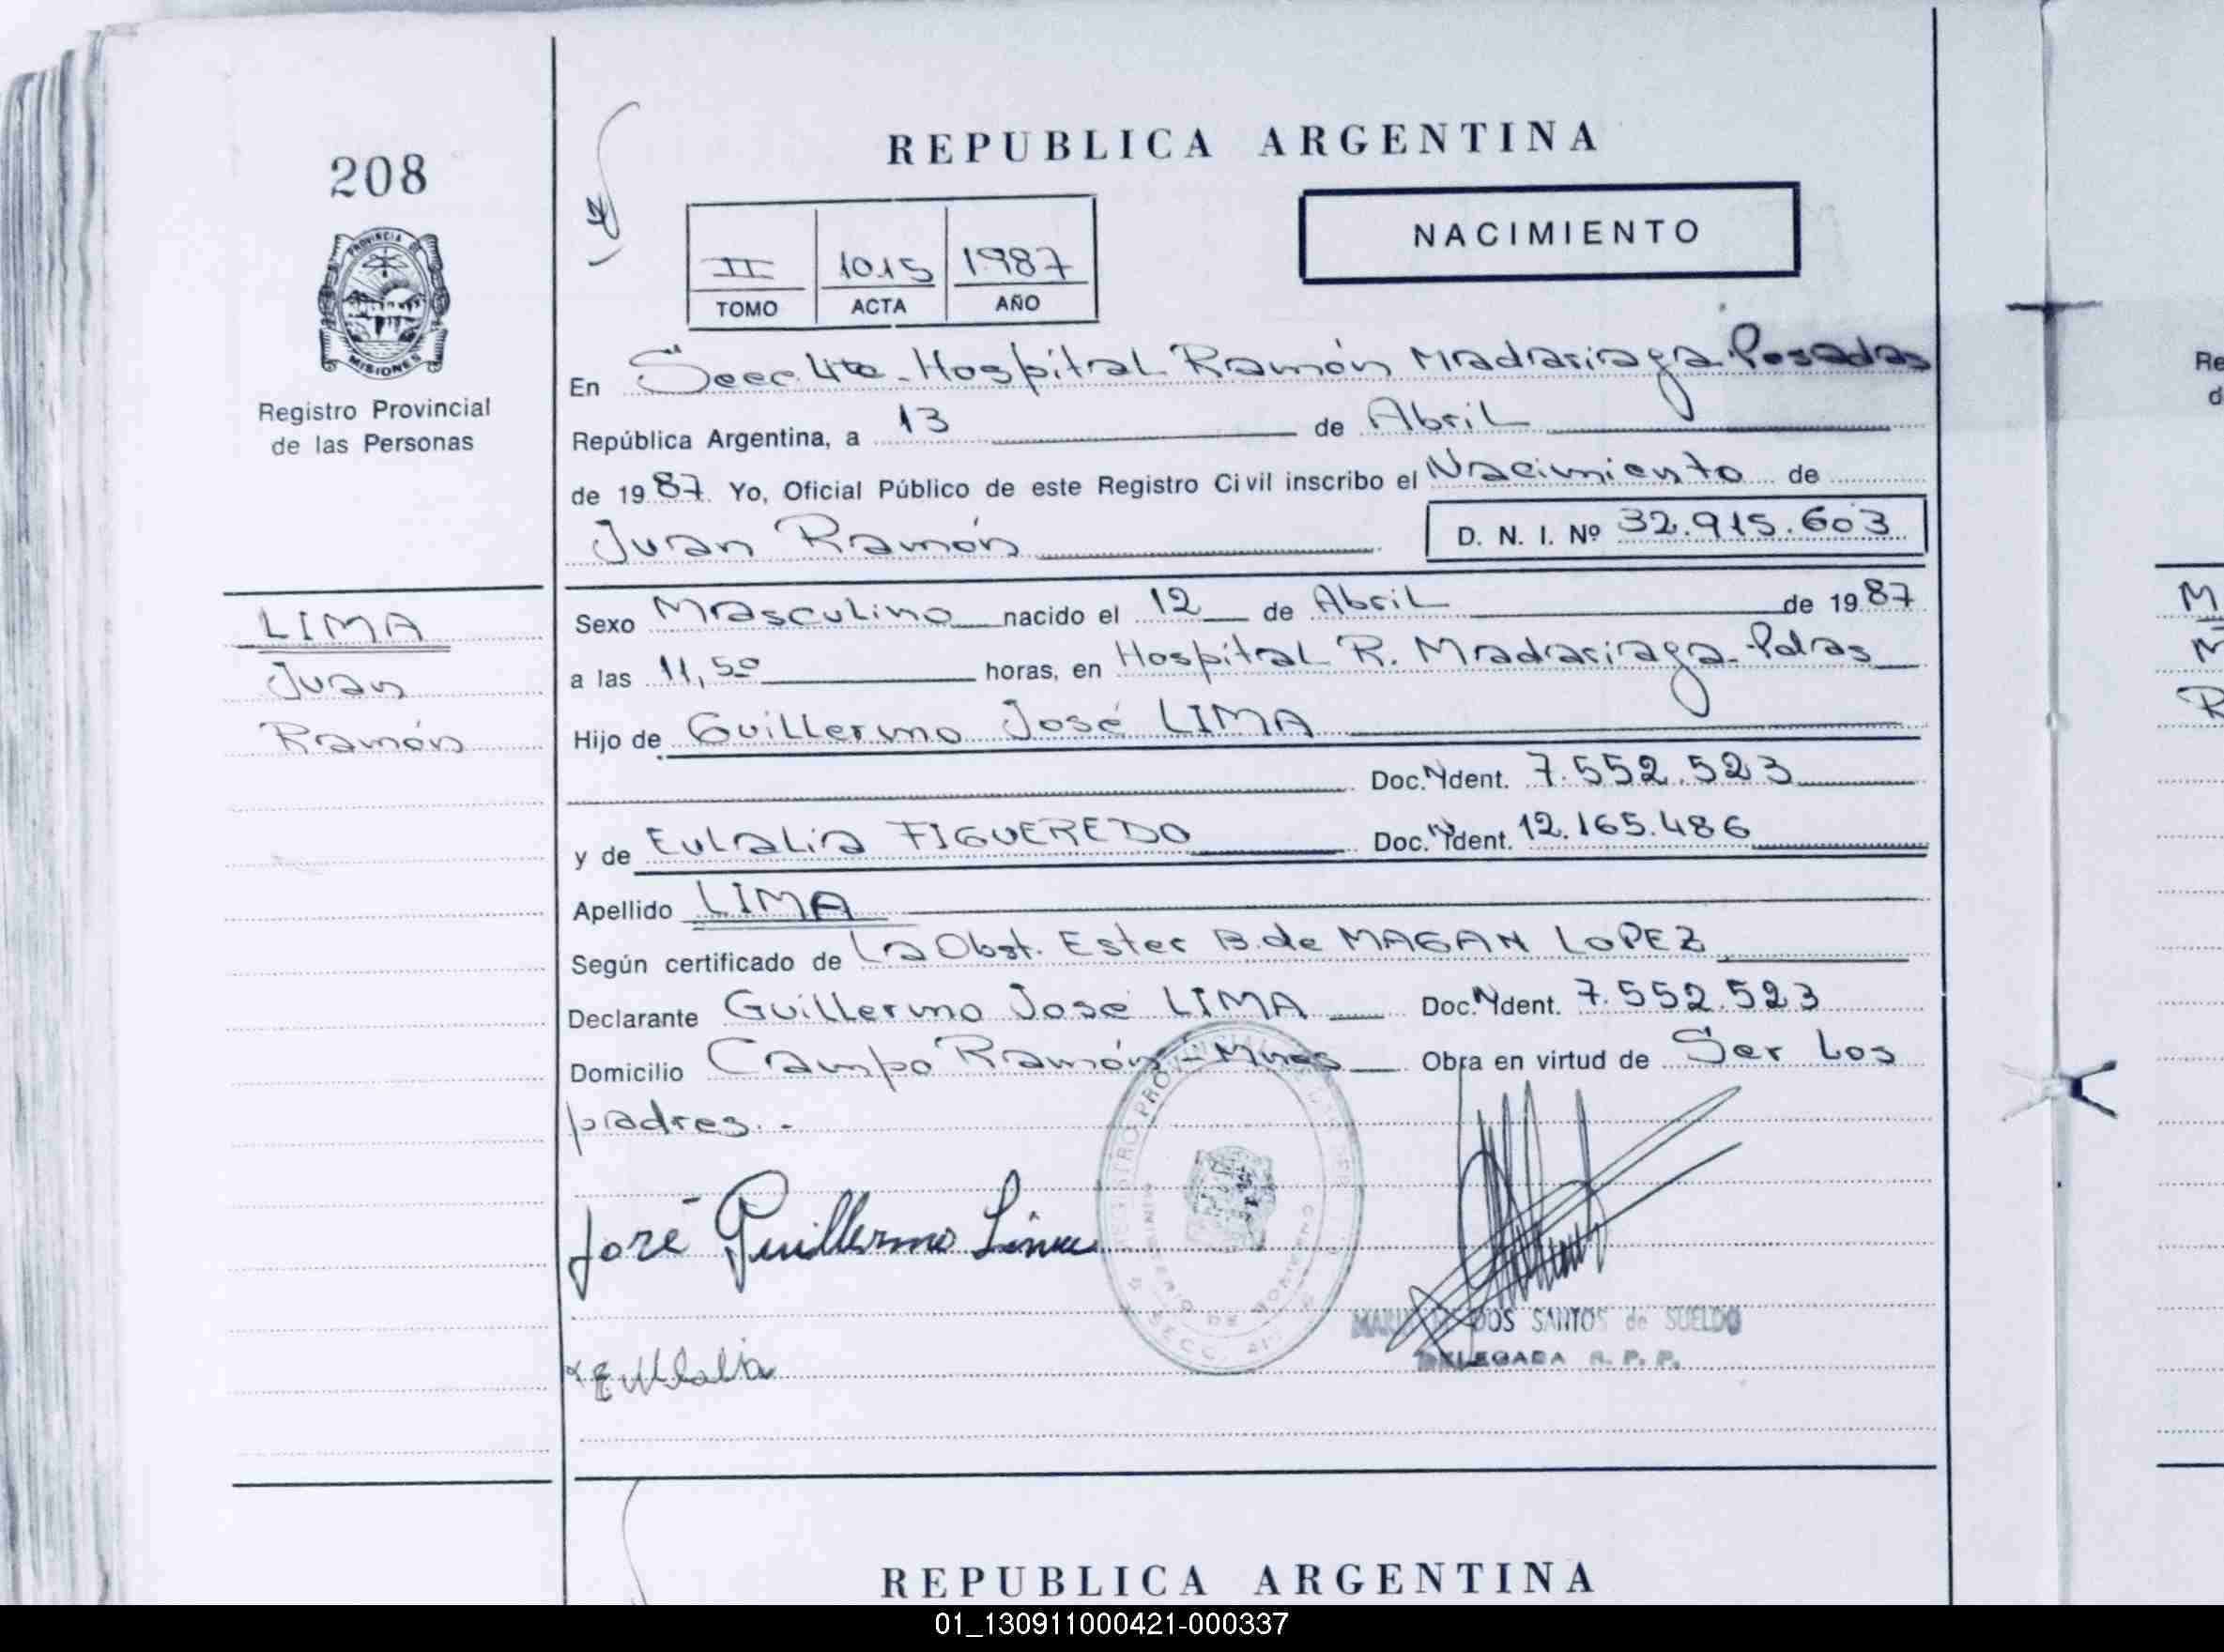 208
PROVINCIA DE
MISIONES
Registro Provincial
de las Personas
LIMA
Juan
Ramón
REPUBLICA ARGENTINA
NACIMIENTO
II 1015 1987
TOMO ACTA AÑO
En Secc 4ta - Hospital Ramón Madariaga - Posadas
República Argentina, a 13 de Abril
de 1987. Yo, Oficial Público de este Registro Civil inscribo el Nacimiento de
Juan Ramón D. N. I. Nº 32.915.603
Sexo Masculino nacido el 12 de Abril de 1987
a las 11,50 horas, en Hospital R. Madariaga - Pdas
Hijo de Guillermo José LIMA
Doc. Ident. 7.552.523
y de Eulalia FIGUEREDO Doc. Ident. 12.165.486
Apellido LIMA
Según certificado de La Obst. Ester B. de MAGAN LOPEZ
Declarante Guillermo José LIMA Doc. Ident. 7.552.523
Domicilio Campo Ramón - Mnes Obra en virtud de Ser los
padres. -
José Guillermo Lima
REGISTRO PROVINCIAL DE
MINISTERIO DE GOBIERNO
SECC. 4
DOS SANTOS de SUELDO
DELEGADA R. P. P.
Eulalia
REPUBLICA ARGENTINA
Re
d
M
R
01_130911000421-000337